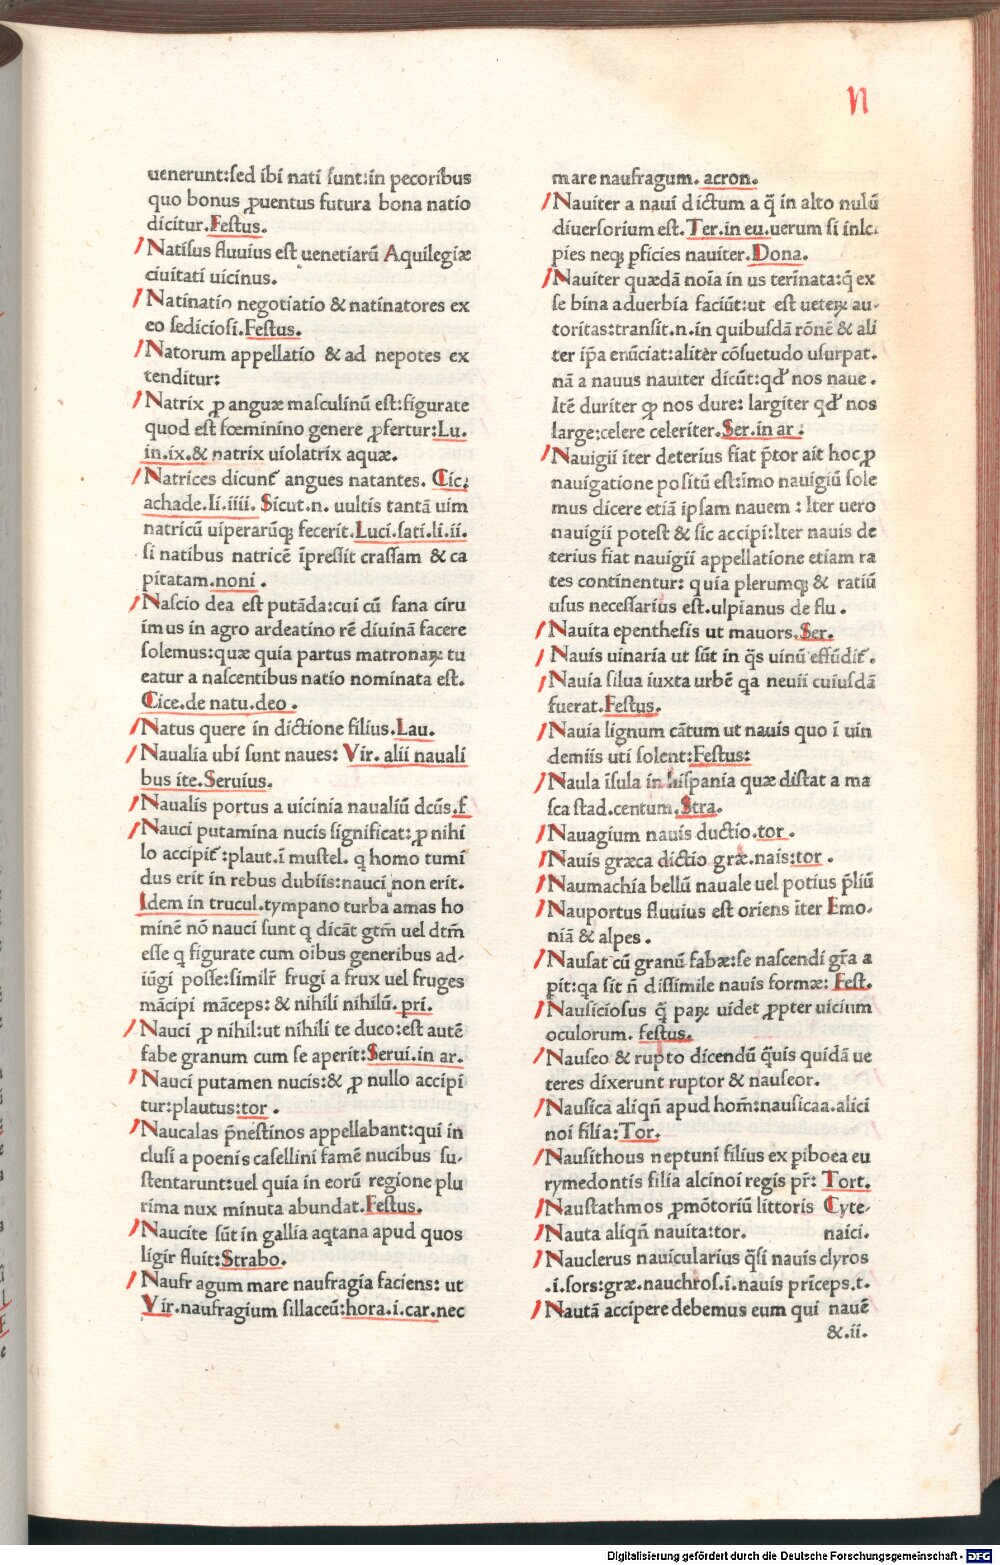 N
uenerunt:sed ibi nati sunt:in pecoribus
quo bonus ꝓuentus futura bona natio
dicitur.Festus.
Natisus fluuius est uenetiarū Aquilegiæ
ciuitati uicinus.
Natinatio negotiatio & natinatores ex
eo sediciosi.Festus.
Natorum appellatio & ad nepotes ex
tenditur:
Natrix ꝓ anguæ masculinū est:figurate
quod est fœminino genere ꝓfertur:Lu.
in.ix.& natrix uiolatrix aquæ.
Natrices dicunt̄ angues natantes. Cic.
achade.Ii.iiii. Sicut.n. uultis tantā uim
natricū uiperarūq; fecerit.Luci.sati.li.ii.
si natibus natricē īpressit crassam & ca
pitatam.noni .
Nascio dea est putāda:cui cū fana ciru
imus in agro ardeatino rē diuinā facere
solemus:quæ quia partus matronaꝝ tu
eatur a nascentibus natio nominata est.
Cice.de natu.deo .
Natus quere in dictione filius.Lau.
Naualia ubi sunt naues: Vir. alii nauali
bus ite.Seruius.
Naualis portus a uicinia naualiū dcūs.f
Nauci putamina nucis significat:ꝓ nihi
lo accipit̄ :plaut.ī mustel. q homo tumi
dus erit in rebus dubiis:nauci non erit.
Idem in trucul.tympano turba amas ho
minē nō nauci sunt q dicāt gtm̄ uel dtm̄
esse q figurate cum oībus generibus ad-
iūgi posse:similr̄ frugi a frux uel fruges
mācipi māceps: & nihili nihilū. pri.
Nauci ꝓ nihil:ut nihili te duco:est autē
fabe granum cum se aperit:Serui.in ar.
Nauci putamen nucis:& ꝓ nullo accipi
tur:plautus:tor .
Naucalas p̄nestinos appellabant:qui in
clusi a poenis casellini famē nucibus su-
stentarunt:uel quia in eorū regione plu
rima nux minuta abundat.Festus.
Naucite sūt in gallia aq̄tana apud quos
ligir fluit:Strabo.
Naufr agum mare naufragia faciens: ut
Vir.naufragium sillaceū:hora.i.car.nec
mare naufragum. acron.
Nauiter a naui dictum a q̄ in alto nulū
diuersorium est. Ter.in eu.uerum si inlc.
pies neq; ꝓficies nauiter.Dona.
Nauiter quædā noīa in us terīnata:q̄ ex
se bina aduerbia faciūt:ut est ueteꝝ au-
toritas:transit.n.in quibusdā rōnē & ali
ter ip̄a enūciat:aliter cōsuetudo usurpat.
nā a nauus nauiter dicūt:qd' nos naue .
Itē duriter ꝙ nos dure: largiter qd' nos
large:celere celeriter.Ser.in ar .
Nauigii iter deterius fiat p̄tor ait hoc ꝓ
nauigatione positū est:īmo nauigiū sole
mus dicere etiā ipsam nauem : Iter uero
nauigii potest & sic accipi:Iter nauis de
terius fiat nauigii appellatione etiam ra
tes continentur: quia plerumq; & ratiū
usus necessarius est.ulpianus de flu .
Nauita epenthesis ut mauors.Ser.
Nauis uinaria ut sūt in q̄s uinū effūdit̄ .
Nauia silua iuxta urbē qa neuii cuiusdā
fuerat.Festus.
Nauia lignum cātum ut nauis quo ī uin
demiis uti solent:Festus:
Naula īsula in hispania quæ distat a ma
sca stad.centum.Stra.
Nauagium nauis ductio.tor .
Nauis græca dictio græ.nais:tor .
Naumachia bellū nauale uel potius p̄liū
Nauportus fluuius est oriens īter Emo-
niā & alpes .
Nausat cū granū fabæ:se nascendi gr̄a a
ꝑit:qa sit n̄ dissimile nauis formæ: Fest.
Nausiciosus q̄ paꝝ uidet ꝓpter uicium
oculorum. festus.
Nauseo & rupto dicendū q̄uis quidā ue
teres dixerunt ruptor & nauseor.
Nausica aliqn̄ apud hom̄:nausicaa.alici
noi filia:Tor.
Nausithous neptuni filius ex piboea eu
rymedontis filia alcinoi regis pr̄: Tort.
Naustathmos ꝓmōtoriū littoris Cyte-
Nauta aliqn̄ nauita:tor. naici.
Nauclerus nauicularius q̄si nauis clyros
.i.sors:græ.nauchros.i.nauis prīceps.t.
Nautā accipere debemus eum qui nauē
&.ii.
Digitalisierung gefördert durch die Deutsche Forschungsgemeinschaft - DFG